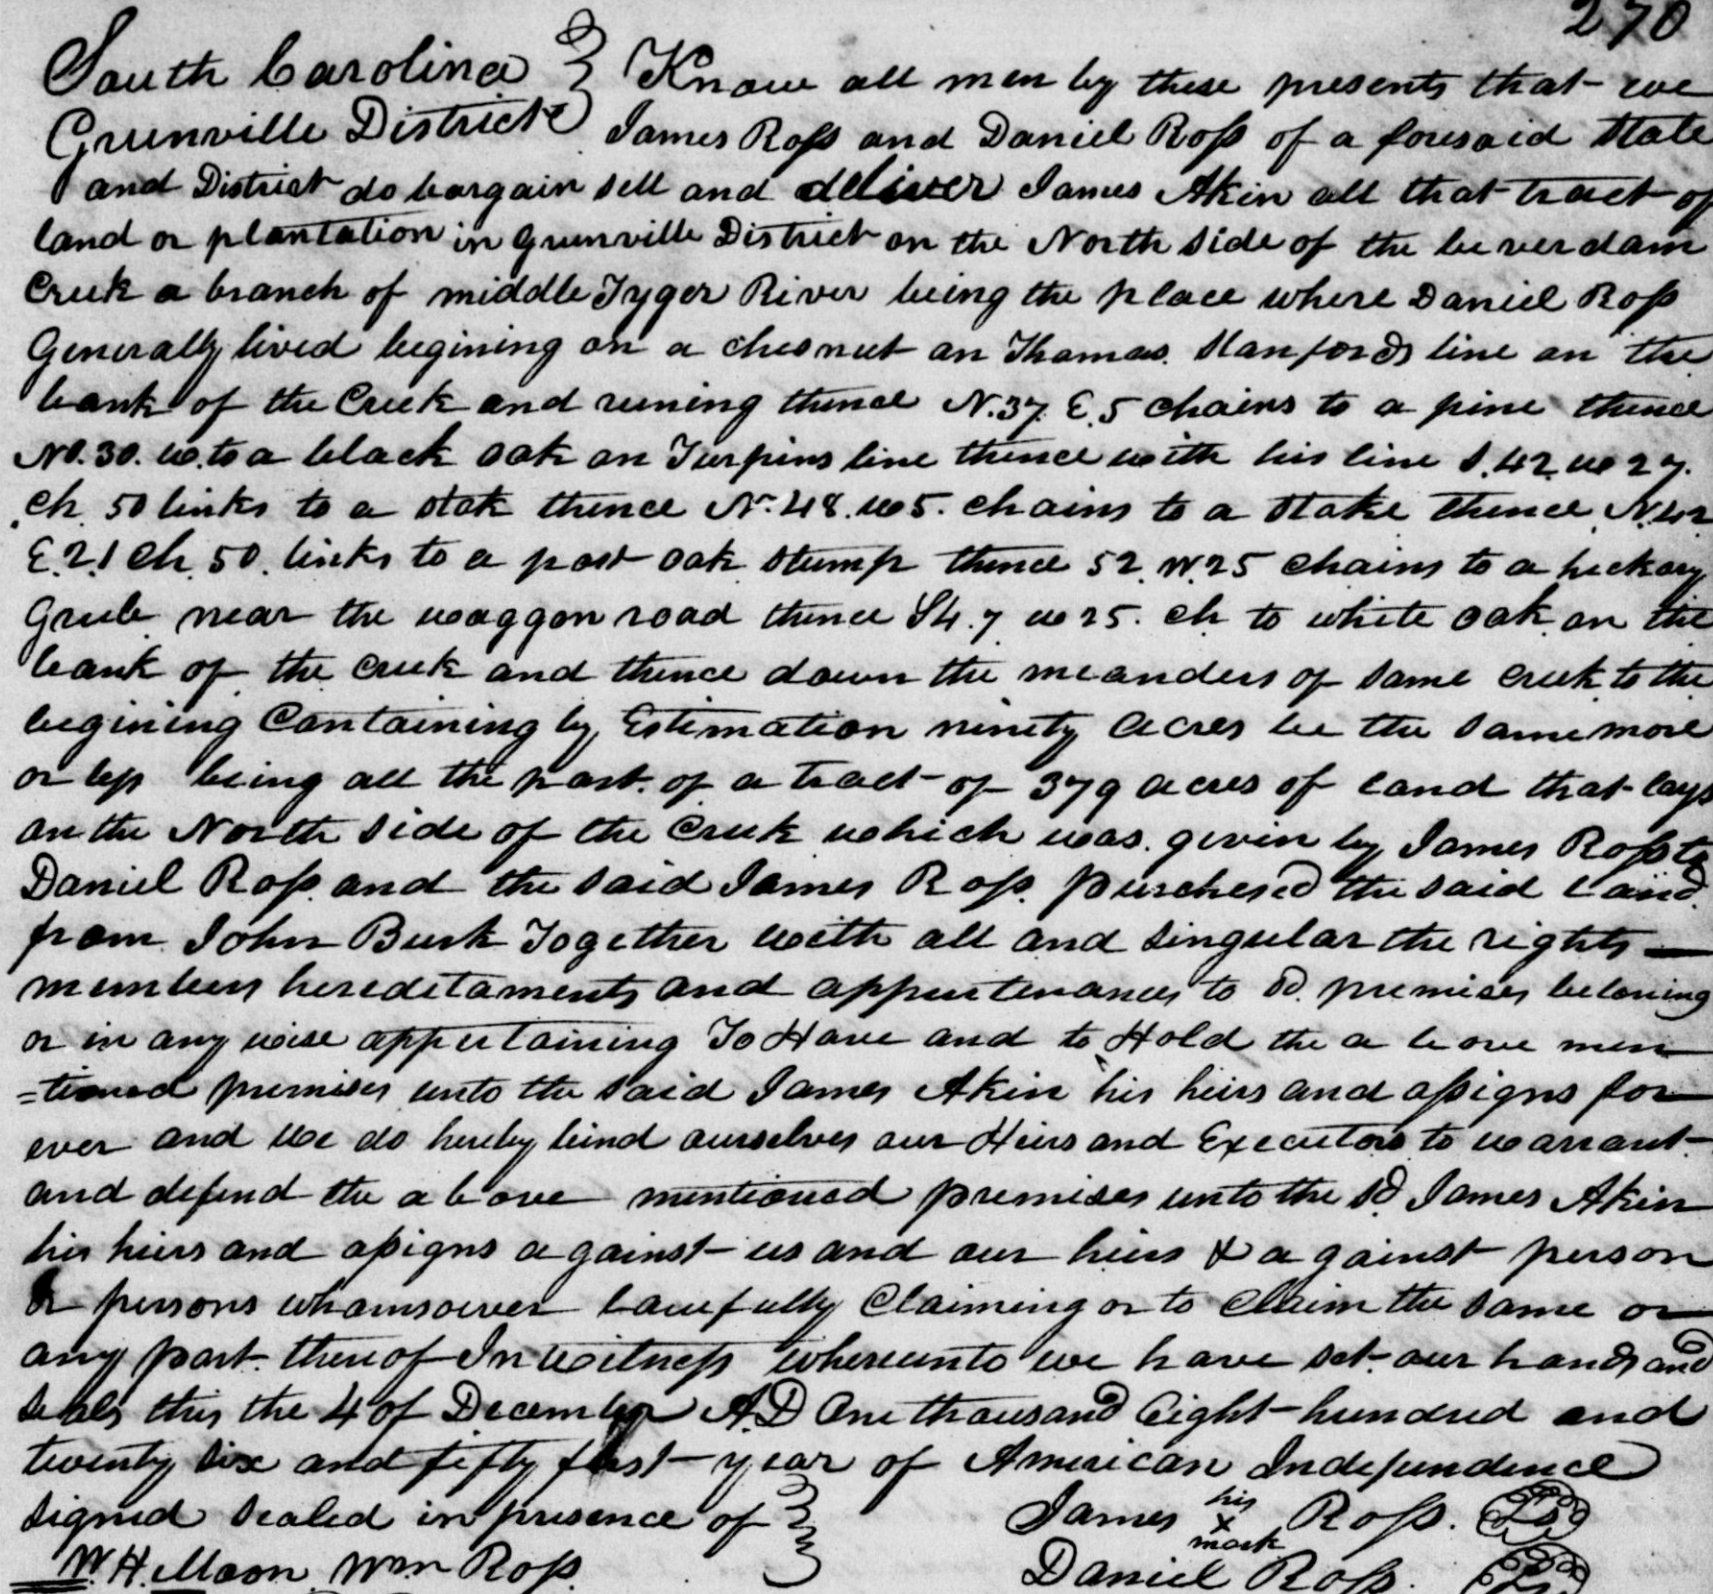 270
South Carolina } Know all men by these presents that we
Greenville District } James Ross and Daniel Ross of a foresaid State
and District do bargain sell and deliver James Akin all that tract of
land or plantation in Greenville District on the North side of the beverdam
Creek a branch of middle Tyger River being the place where Daniel Ross
Generally lived begining on a chesnut on Thomas Stanfords line on the
bank of the Creek and runing thence N. 37. E. 5 chains to a pine thence
No. 30. W. to a black oak on Turpins line thence with his line S. 42 W 27.
ch. 50 links to a stak thence N. 48. W 5. chains to a stake thence N. 42
E. 21 ch. 50. links to a post oak stump thence 52. W. 25 chains to a hickory
Grub near the waggon road thence S4. 7 W 25. ch to white oak on the
bank of the creek and thence down the meanders of same creek to the
begining Containing by Estimation ninety acres be the same more
or less being all the part of a tract of 379 acres of land that lays
on the North side of the Creek which was given by James Ross to
Daniel Ross and the said James Ross purchesed the said land
from John Burk Together with all and singular the rights
members hereditaments and appurtenances to sd. premises beloning
or in any wise appertaining To Have and to Hold the a bove men
=tioned premises unto the said James Akin his heirs and assigns for
ever and we do hereby bind ourselves our Heirs and Executors to warrant
and defend the a bove mentioned premises unto the sd James Akin
his heirs and assigns a gainst us and our heirs & a gainst person
or persons whomsoever lawfully Claiming or to claim the same or
any part thereof In witness whereunto we have set our hands and
seals this the 4 of December A.D One thousand Eight hundred and
twenty six and fifty first year of American Independence
signed sealed in presence of } James his x mark Ross. LS
W. H. Moon Wm Ross. } Daniel Ross. LS